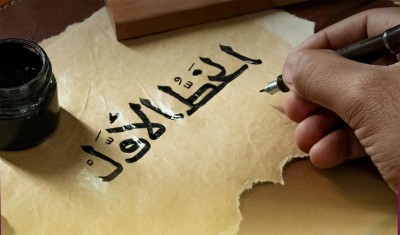 الخطّ الأوّل